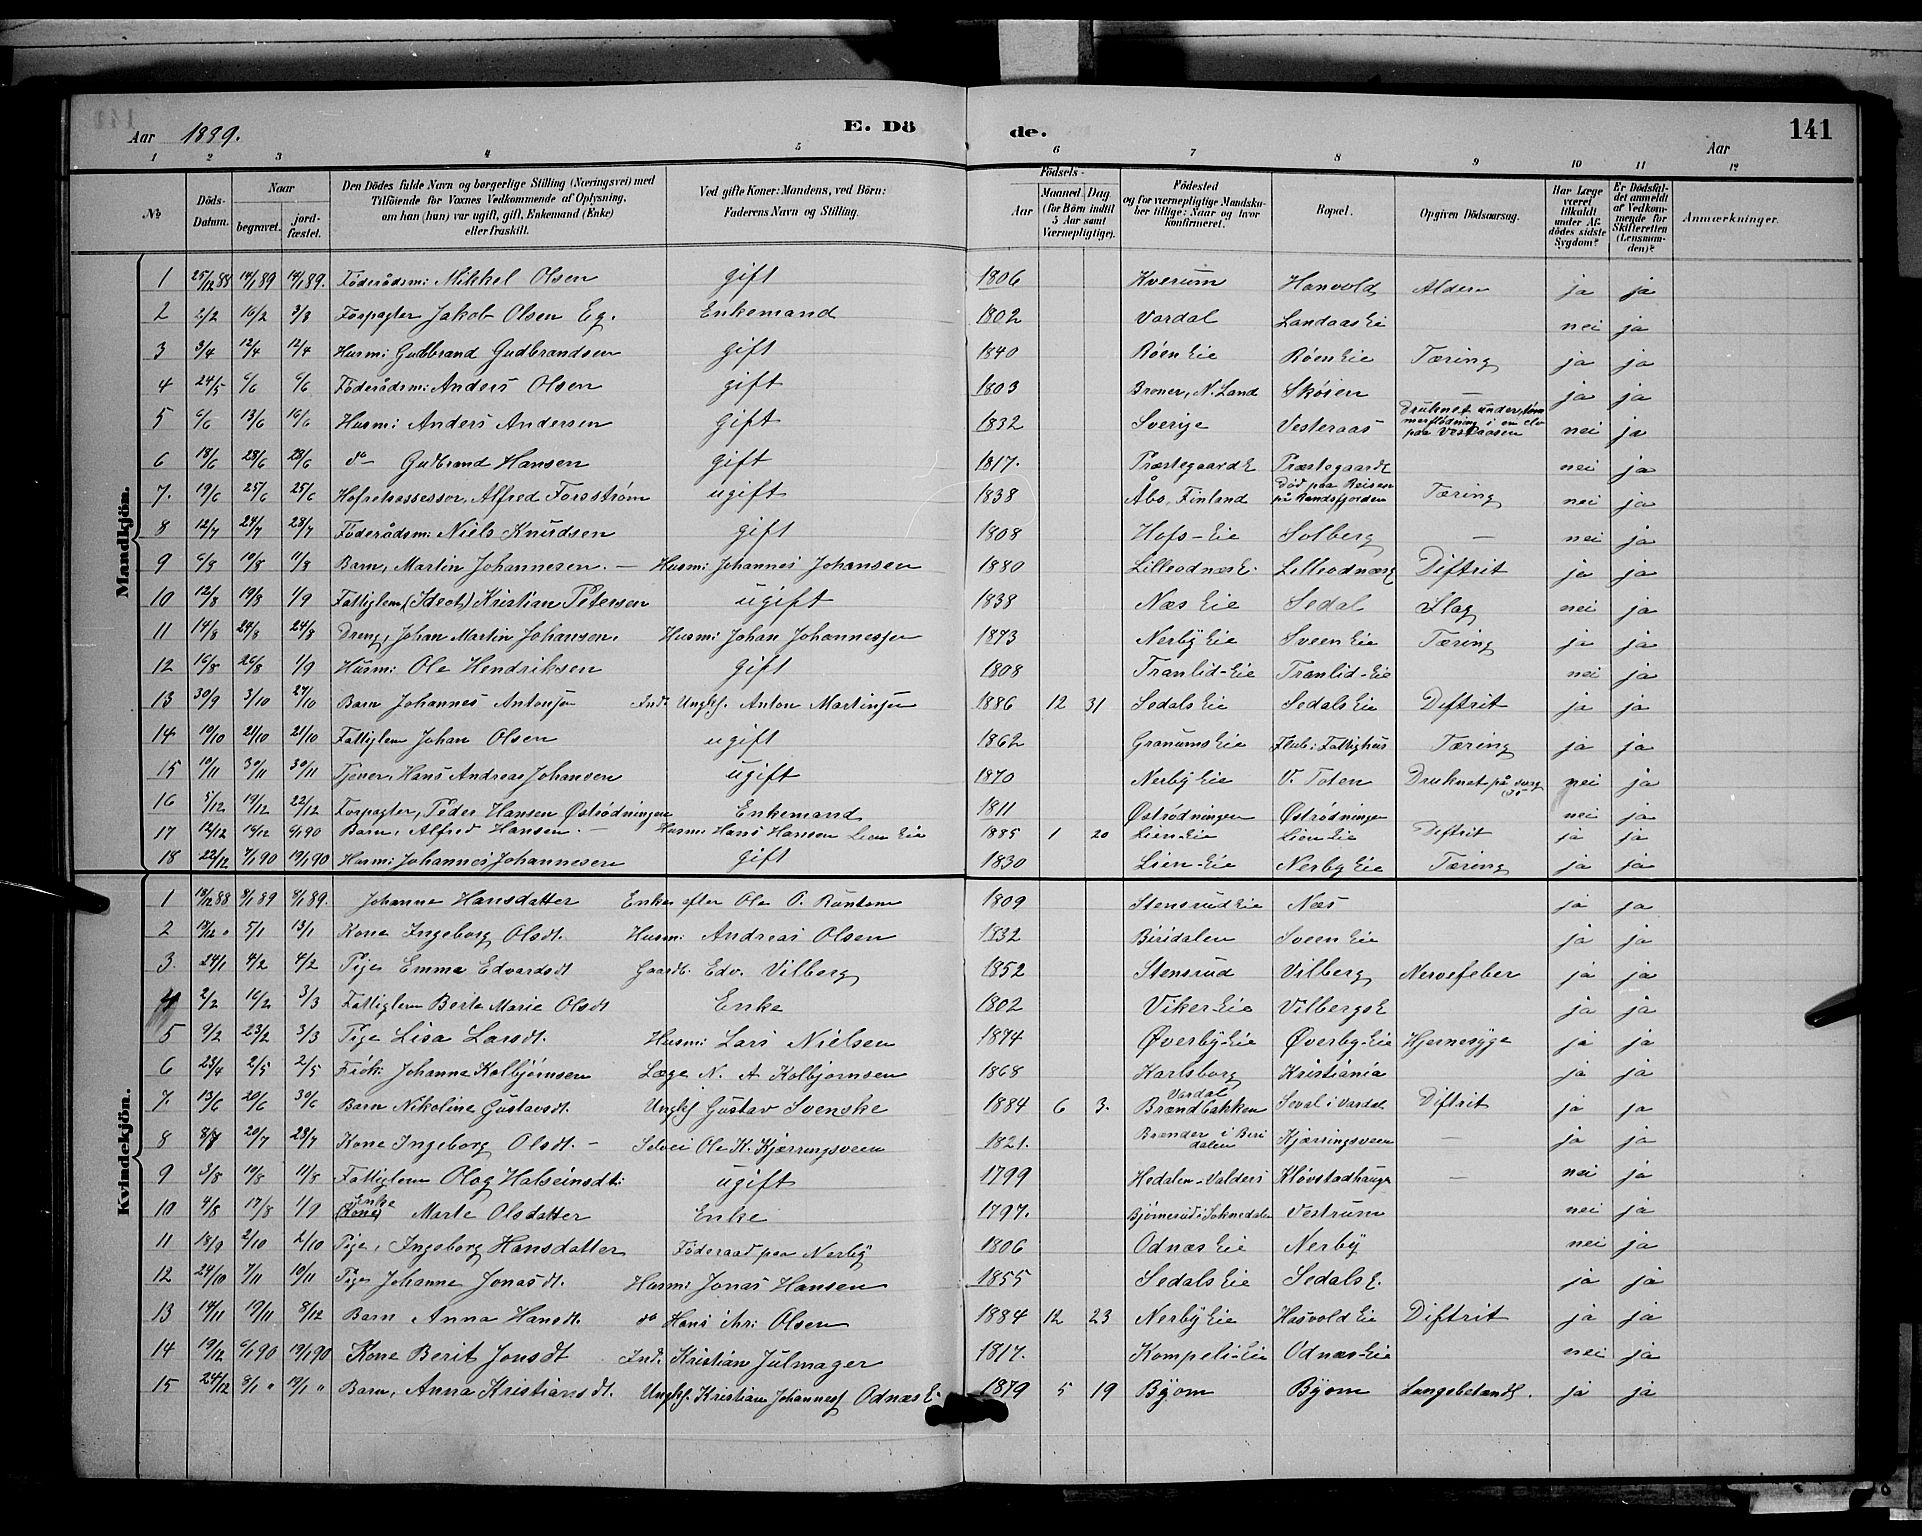 Aar 1889. E. Dö de. Aar 141
1 2 3 4 5 6 7 8 9 10 11 12
№ Döds-Datum. Naar begravet. jordfæstet. Den Dödes fulde Navn og borgerlige Stilling (Næringsvei) med Tilföiende for Voxnes Vedkommende af Oplysning, om han (hun) var ugift, gift, Enkemand (Enke) eller fraskilt. Ved gifte Koner: Mandens, ved Börn: Faderens Navn og Stilling. Födsels- Aar Maaned Dag (for Börn indtil 5 Aar samt Værnepligtige). Födested og for værnepligtige Mandskaber tillige: Naar og hvor konfirmeret. Bopæl. Opgiven Dödsaarsag. Har Læge været tilkaldt under Afdödes sidste Sygdom? Er Dödsfaldet anmeldt af Vedkommende for Skifteretten (Lensmanden)? Anmærkninger.
Mandkjön.
1 25/12 88 14/1 89 14/1 89. Föderådsm: Mikkel Olsen gift 1806 Kverum Hanvold Alder ja ja
2 2/2 16/2 3/3 Forpagter Jakob Olsen Eg. Enkemand 1802 Vardal Landaas Eie nei ja
3 3/4 12/4 12/4 Husm: Gudbrand Gudbrandsen gift 1840 Røen Eie Røen Eie Tæring ja ja
4 24/5 6/6 6/6 Föderådsm: Anders Olsen gift 1803 Broner, N. Land Skøien — ja ja
5 6/6 13/6 16/6 Husm: Anders Andersen gift 1832 Sverige Vesteraas Druknet under tømmerflødning i en elv paa Vestaasen nei ja
6 18/6 28/6 28/6 do Gudbrand Hansen gift 1817. Præstegaard E Præstegaard E nei ja
7. 19/6 25/6 25/6 Hofretsassessor, Alfred Forsström ugift 1838 Åbo, Finland Död paa Reisen på Randsfjorden Tæring nei ja
8 12/7 24/7 28/7 Föderådsm: Niels Knudsen gift 1808 Hofs-Eie Solberg — nei ja
9 6/8 10/8 11/8 Barn, Martin Johannesen. — Husm: Johannes Johansen 1880 Lilleodnæs E. Lilleodnæs E Diftrit ja ja
10 12/8 19/8 1/9 Fattiglem (Ideot) Kristian Petersen ugift 1838 Næs Eie Sedal Slag nei ja
11 14/8 24/8 24/8 Dreng, Johan Martin Johansen. Husm: Johan Johannessen 1873 Nerby Eie Sveen Eie Tæring ja ja
12 16/8 26/8 1/9 Husm: Ole Hendriksen gift 1808 Tranlid-Eie Tranlid-Eie nei ja
13 30/9 3/10 27/10 Barn Johannes Antonsen Ind. Ungkf. Anton Martinsen 1886 12 31 Sedals Eie Sedals Eie Diftrit ja ja
14 10/10 21/10 21/10 Fattiglem Johan Olsen ugift 1862 Granums Eie Flub: Fattighus Tæring ja ja
15 10/11 30/11 30/11 Tjener, Hans Andreas Johansen ugift 1870 Nerby Eie V. Toten Druknet på nei ja
16 5/12 19/12 22/12 Forpagter, Peder Hansen Østrødningen Enkemand 1811 Østrødningen Østrødningen nei ja
17 12/12 19/12 6/1 90 Barn, Alfred Hansen. — Husm: Hans Hansen Lien Eie 1885 1 20 Lien-Eie Lien-Eie Diftrit ja ja
18 22/12 7/1 90 19/1 90 Husm: Johannes Johannesen gift 1830 Lien-Eie Nerby Eie Tæring ja ja
Kvindekjön.
1 18/12 88 8/1 89 8/1 89. Johanne Hansdatter Enke efter Ole O. Runtom 1809 Stensrud Eie Næs ja ja
2 19/12 " 5/1 13/1 Kone Ingeborg Olsdt. Husm: Andreas Olsen 1832 Biridalen Sveen Eie ja ja
3. 24/1 4/2 4/2 Pige Emma Edvardsdt Gaardb. Edv. Vilberg 1852 Stensrud Vilberg Nervefeber ja ja
4 2/2 16/2 3/3 Fattiglem Berte Marie Olsdt Enke 1802 Viker Eie Vilbergs E ja ja
5 9/2 23/2 3/3 Pige Lisa Larsdt. Husm: Lars Nielsen 1874 Øverby-Eie Øverby-Eie Hjernesyge ja ja
6 23/4 2/5 2/5 Frök: Johanne Kolbjörnsen Læge N. A. Kolbjornsen 1868 Karlsborg Kristiania ja ja
7. 13/6 20/6 30/6 Barn Nikoline Gustavsdt. Ungkf Gustav Svenske 1884 6 3. Vardal Brændbakken Seval i Vardal Diftrit ja ja
8 8/7 20/7 28/7 Kone Ingeborg Olsdt. — Selvei Ole K. Kjærringsveen 1821. Brænder i Beridalen Kjærringsveen — ja ja
9 3/8 10/8 11/8 Fattiglem Olog Halseinsdt: ugift 1799 Hedalen-Valders Kløvstadhaugen — nei ja
10 4/8 17/8 1/9 Enke (Kone) Marte Olsdatter Enke 1797. Bjørnerud i Toknedalen Vestrum nei ja
11 18/9 2/10 2/10 Pige, Ingeborg Hansdatter Föderaad paa Nerby 1806 Odnæs Eie Nerby nei ja
12 24/10 7/11 10/11 Pige Johanne Jonasdt. Husm: Jonas Hansen 1855 Sedals Eie Sedals E. ja ja
13 14/11 19/11 8/12 Barn Anna Hansdt. do Hans Chr: Olsen 1884 12 23 Nerby Eie Hasvold Eie Diftrit ja ja
14 19/12 6/1 90 19/1 90 Kone Berit Jonsdt Ind. Kristian Julmager 1817. Kompeli-Eie Odnæs-Eie nei ja
15 24/12 8/1 " 19/1 " Barn, Anna Kristiansdt. Ungkf. Kristian Johannesf Odnæs E. 1879 5 19 Byom Byom Lungebetændt. ja ja